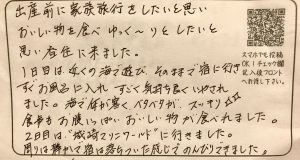 出産前に家族旅行をしたいと思い
おいしい物を食べ ゆっく～りとしたいと
思い 在住に来ました。
1日目は、近くの海で遊び、そのままで宿に行き
すぐお風呂に入れ すごく気持ち良くいやされ
ました。海で体が寒く、ベタベタが、スッキリ
食事もお腹いっぱい おいしい物が食べれました。
2日目は、"城崎マリンワールド"に行きました。
周りは静かで宿は落ちついた感じでのんびりできました。
スマホでも投稿
OK!チェック欄
記入後フロント
へお持ち下さい。